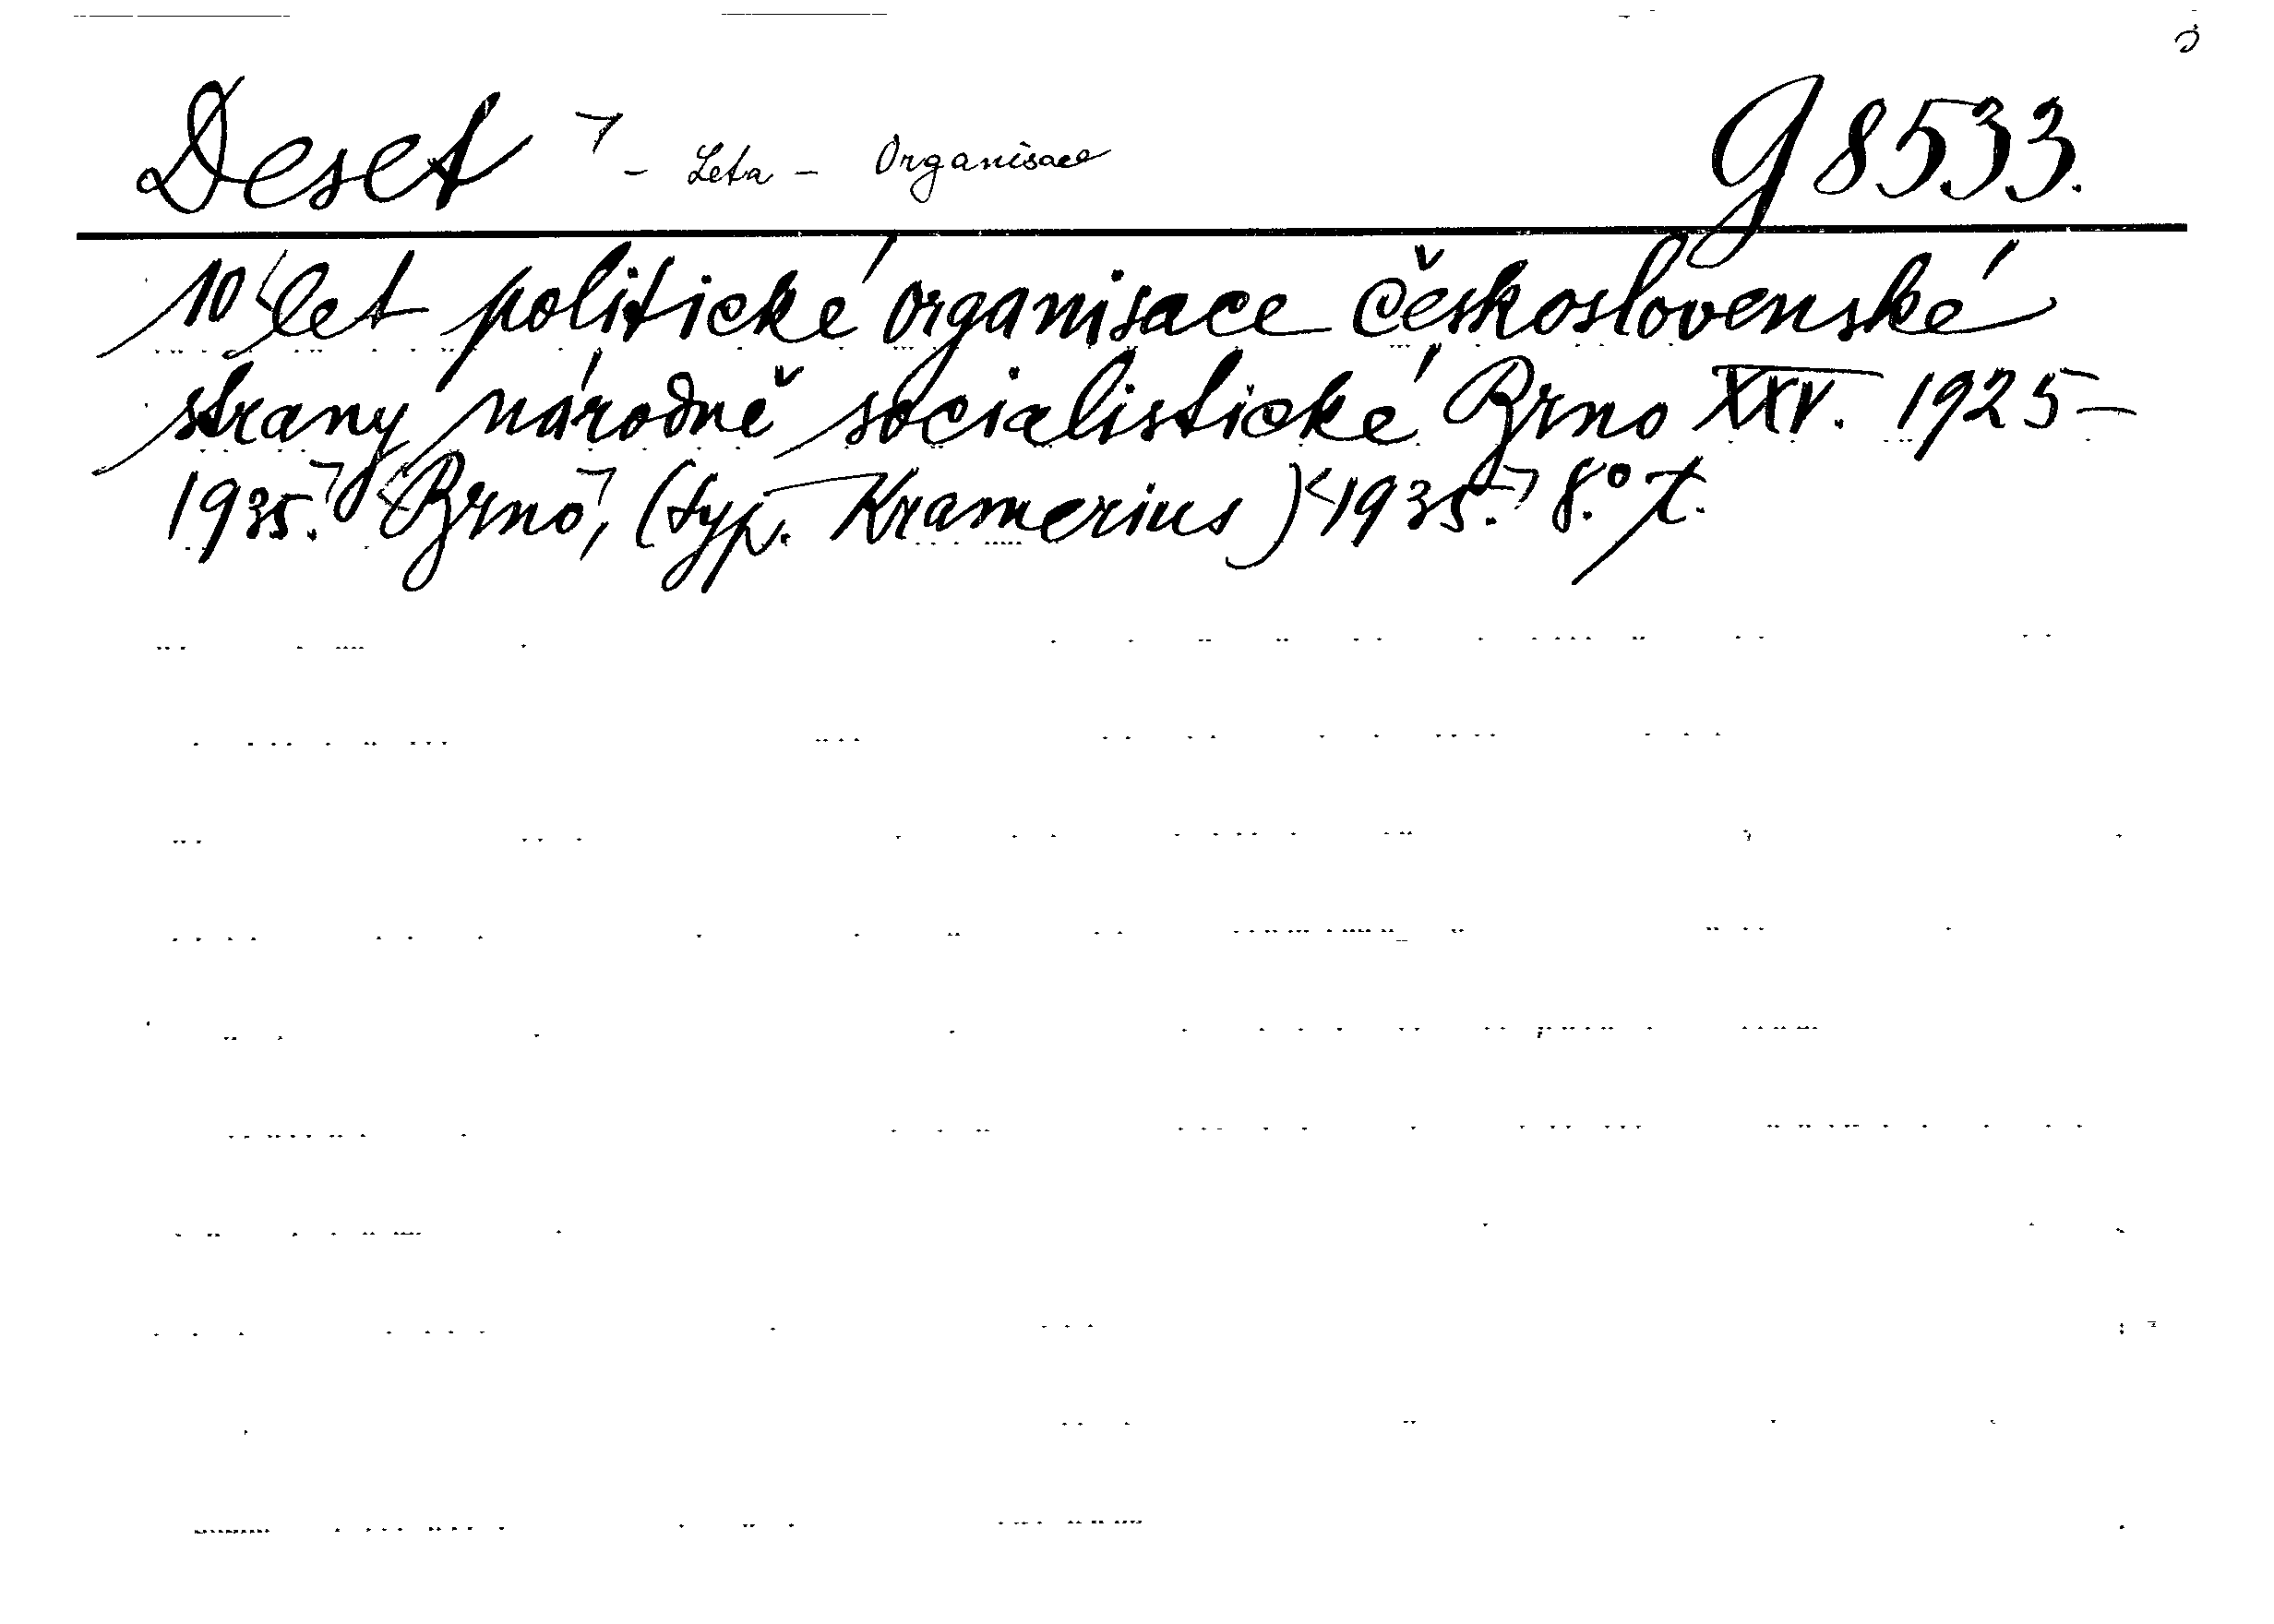 Deset - Leta - Organisace G 8533.
10 let politické organisace československé
strany národně socialistické Brno XXV. 1925-
1935. Brno, (typ. Kramerius) 1935. 8.° t.